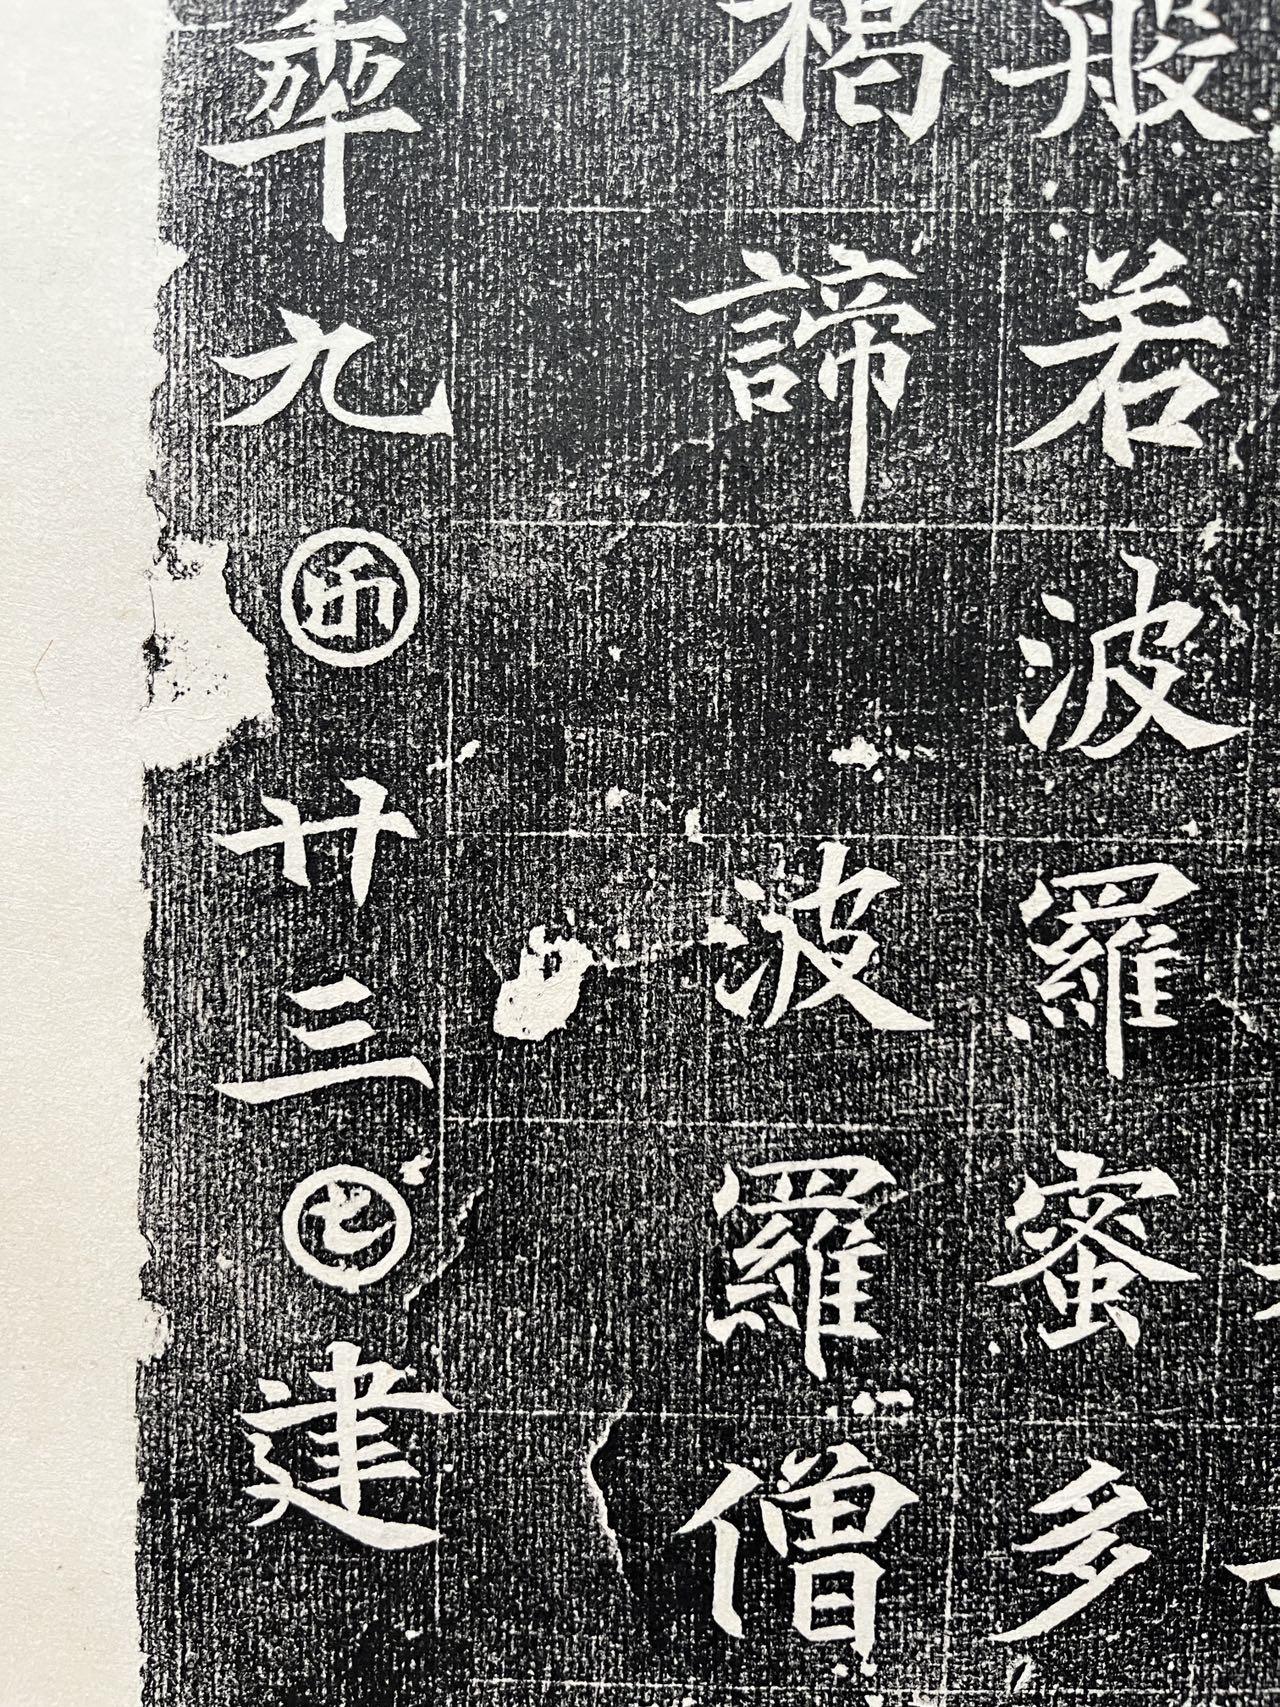 般若波羅蜜多
揭諦　波羅僧
𠡦九𠥱廿三𡆠建